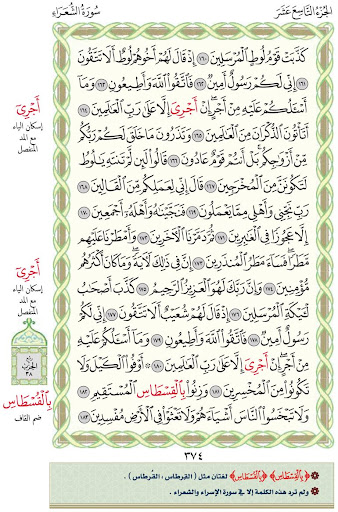 الجزء التاسع عشر
سورة الشعراء
كَذَّبَتْ قَوْمُ لُوطٍ ٱلْمُرْسَلِينَ ١٦٠ إِذْ قَالَ لَهُمْ أَخُوهُمْ لُوطٌ أَلَا تَتَّقُونَ
١٦١ إِنِّي لَكُمْ رَسُولٌ أَمِينٌ ١٦٢ فَٱتَّقُوا۟ ٱللَّهَ وَأَطِيعُونِ ١٦٣ وَمَآ
أَسْـَٔلُكُمْ عَلَيْهِ مِنْ أَجْرٍ إِنْ أَجْرِىٓ إِلَّا عَلَىٰ رَبِّ ٱلْعَٰلَمِينَ ١٦٤
أَتَأْتُونَ ٱلذُّكْرَانَ مِنَ ٱلْعَٰلَمِينَ ١٦٥ وَتَذَرُونَ مَا خَلَقَ لَكُمْ رَبُّكُم
مِّنْ أَزْوَٰجِكُم بَلْ أَنتُمْ قَوْمٌ عَادُونَ ١٦٦ قَالُوا۟ لَئِن لَّمْ تَنتَهِ يَٰلُوطُ
لَتَكُونَنَّ مِنَ ٱلْمُخْرَجِينَ ١٦٧ قَالَ إِنِّي لِعَمَلِكُم مِّنَ ٱلْقَالِينَ ١٦٨
رَبِّ نَجِّنِي وَأَهْلِي مِمَّا يَعْمَلُونَ ١٦٩ فَنَجَّيْنَٰهُ وَأَهْلَهُۥٓ أَجْمَعِينَ ١٧٠
إِلَّا عَجُوزًا فِي ٱلْغَٰبِرِينَ ١٧١ ثُمَّ دَمَّرْنَا ٱلْـَٔاخَرِينَ ١٧٢ وَأَمْطَرْنَا عَلَيْهِم
مَّطَرًا فَسَآءَ مَطَرُ ٱلْمُنذَرِينَ ١٧٣ إِنَّ فِي ذَٰلِكَ لَـَٔايَةً وَمَا كَانَ أَكْثَرُهُم
مُّؤْمِنِينَ ١٧٤ وَإِنَّ رَبَّكَ لَهُوَ ٱلْعَزِيزُ ٱلرَّحِيمُ ١٧٥ كَذَّبَ أَصْحَٰبُ
لْـَٔيْكَةِ ٱلْمُرْسَلِينَ ١٧٦ إِذْ قَالَ لَهُمْ شُعَيْبٌ أَلَا تَتَّقُونَ ١٧٧ إِنِّي لَكُمْ
رَسُولٌ أَمِينٌ ١٧٨ فَٱتَّقُوا۟ ٱللَّهَ وَأَطِيعُونِ ١٧٩ وَمَآ أَسْـَٔلُكُمْ عَلَيْهِ
مِنْ أَجْرٍ إِنْ أَجْرِىٓ إِلَّا عَلَىٰ رَبِّ ٱلْعَٰلَمِينَ ١٨٠ أَوْفُوا۟ ٱلْكَيْلَ وَلَا
تَكُونُوا۟ مِنَ ٱلْمُخْسِرِينَ ١٨١ وَزِنُوا۟ بِٱلْقُسْطَاسِ ٱلْمُسْتَقِيمِ ١٨٢
وَلَا تَبْخَسُوا۟ ٱلنَّاسَ أَشْيَآءَهُمْ وَلَا تَعْثَوْا۟ فِي ٱلْأَرْضِ مُفْسِدِينَ ١٨٣
أَجْرِىٓ
إسكان الياء
مع المد
المنفصل
أَجْرِىٓ
إسكان الياء
مع المد
المنفصل
الحزب
٣٨
بِٱلْقُسْطَاسِ
ضم القاف
٣٧٤
﴿بِٱلْقِسْطَاسِ﴾ ﴿بِٱلْقُسْطَاسِ﴾ لغتان مثل ( القرطاس ، القُرطاس ) .
ولم ترد هذه الكلمة إلا في سورة الإسراء والشعراء .